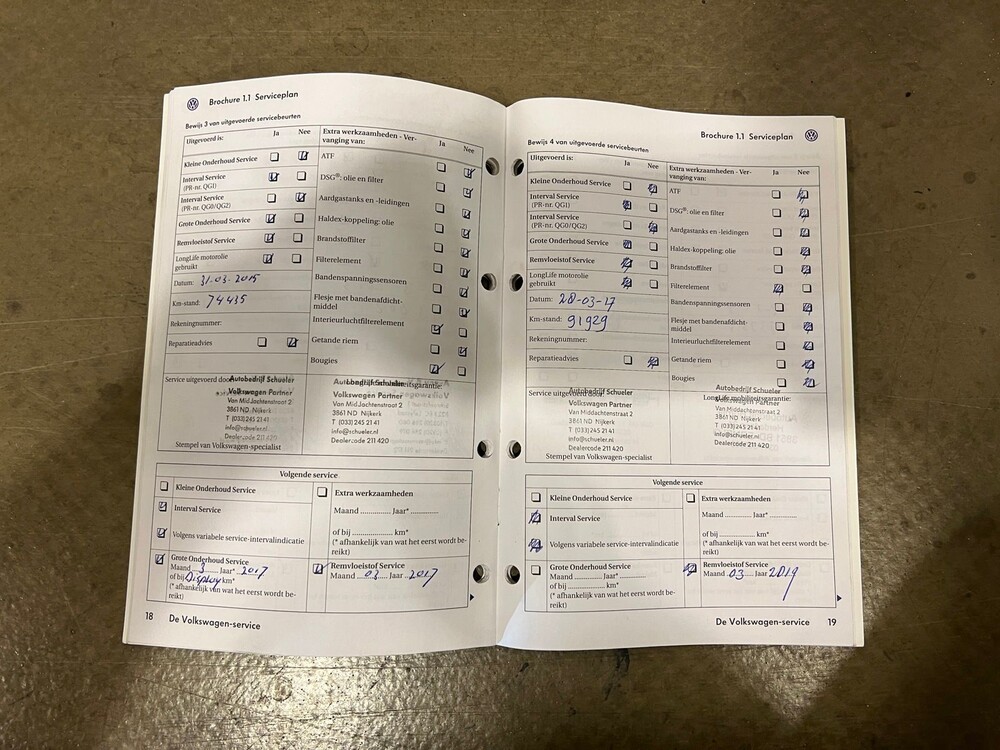 Brochure 1.1 Serviceplan
Bewijs 3 van uitgevoerde servicebeurten
Uitgevoerd is: Ja Nee
Kleine Onderhoud Service
Interval Service
(PR-nr. QG1)
Interval Service
(PR-nr. QG0/QG2)
Grote Onderhoud Service
Remvloeistof Service
LongLife motorolie
gebruikt
Datum: 31.03.2015
Km-stand: 74435
Rekeningnummer:
Reparatieadvies
Extra werkzaamheden - Ver-
vanging van: Ja Nee
ATF
DSG®: olie en filter
Aardgastanks en -leidingen
Haldex-koppeling: olie
Brandstoffilter
Filterelement
Bandenspanningssensoren
Flesje met bandenafdicht-
middel
Interieurluchtfilterelement
Getande riem
Bougies
Service uitgevoerd door:
Autobedrijf Schueler
Volkswagen Partner
Van Middachtenstraat 2
3861 ND Nijkerk
T (033) 245 21 41
info@schueler.nl
Dealercode 211 420
Stempel van Volkswagen-specialist
LongLife mobiliteitsgarantie:
Autobedrijf Schueler
Volkswagen Partner
Van Middachtenstraat 2
3861 ND Nijkerk
T (033) 245 21 41
info@schueler.nl
Dealercode 211 420
Volgende service
Kleine Onderhoud Service
Interval Service
Volgens variabele service-intervalindicatie
Grote Onderhoud Service
Maand 3 Jaar* 2017
of bij Display km*
(* afhankelijk van wat het eerst wordt be-
reikt)
Extra werkzaamheden
Maand ............. Jaar* .............
of bij ............. km*
(* afhankelijk van wat het eerst wordt be-
reikt)
Remvloeistof Service
Maand 03 Jaar 2017
18 De Volkswagen-service
Brochure 1.1 Serviceplan
Bewijs 4 van uitgevoerde servicebeurten
Uitgevoerd is: Ja Nee
Kleine Onderhoud Service
Interval Service
(PR-nr. QG1)
Interval Service
(PR-nr. QG0/QG2)
Grote Onderhoud Service
Remvloeistof Service
LongLife motorolie
gebruikt
Datum: 28-03-17
Km-stand: 91929
Rekeningnummer:
Reparatieadvies
Extra werkzaamheden - Ver-
vanging van: Ja Nee
ATF
DSG®: olie en filter
Aardgastanks en -leidingen
Haldex-koppeling: olie
Brandstoffilter
Filterelement
Bandenspanningssensoren
Flesje met bandenafdicht-
middel
Interieurluchtfilterelement
Getande riem
Bougies
Service uitgevoerd door:
Autobedrijf Schueler
Volkswagen Partner
Van Middachtenstraat 2
3861 ND Nijkerk
T (033) 245 21 41
info@schueler.nl
Dealercode 211 420
Stempel van Volkswagen-specialist
LongLife mobiliteitsgarantie:
Autobedrijf Schueler
Volkswagen Partner
Van Middachtenstraat 2
3861 ND Nijkerk
T (033) 245 21 41
info@schueler.nl
Dealercode 211 420
Volgende service
Kleine Onderhoud Service
Interval Service
Volgens variabele service-intervalindicatie
Grote Onderhoud Service
Maand ............. Jaar* .............
of bij ............. km*
(* afhankelijk van wat het eerst wordt be-
reikt)
Extra werkzaamheden
Maand ............. Jaar* .............
of bij ............. km*
(* afhankelijk van wat het eerst wordt be-
reikt)
Remvloeistof Service
Maand 03 Jaar 2019
De Volkswagen-service 19